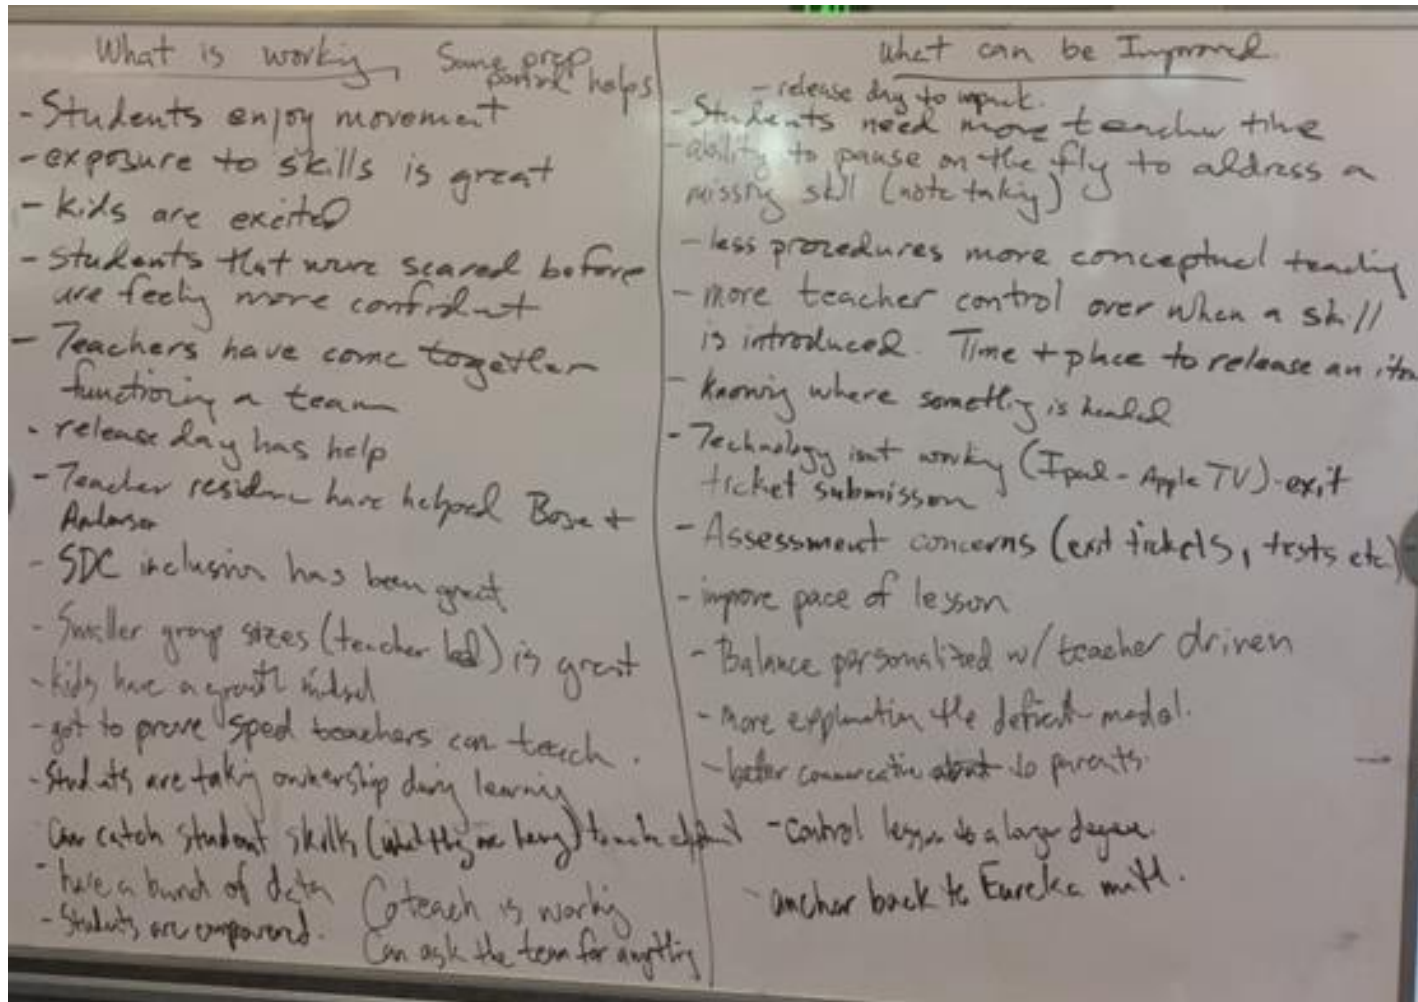 What is working
Same prep
helps
- Students enjoy movement
- exposure to skills is great
- kids are excited
- students that were scared before
are feeling more confident
- Teachers have come together
functioning a team
- release day has help
- Teacher residents have helped Bose +
Anderson
- SDC inclusion has been great
- Smaller group sizes (teacher led) is great
- kids have a growth mindset
- got to prove sped teachers can teach.
- Students are taking ownership during learning
Can catch student skills (what they are having)
- have a bunch of data
- Students are empowered.
Coteach is working
Can ask the team for anything
What can be Improved
- release day to unpack.
- Students need more teacher time
- ability to pause on the fly to address a
missing skill (note taking)
- less procedures more conceptual teaching
- more teacher control over when a skill
is introduced. Time + place to release an item
- knowing where something is headed
- Technology isnt working (Ipad - Apple TV) - exit
ticket submisson
- Assessment concerns (exit tickets, tests etc)
- improve pace of lesson
- Balance personalized w/ teacher driven
- more explanation the deficit model.
- better to parents.
- control lesson to a large degree.
- anchor back to Eureka math.